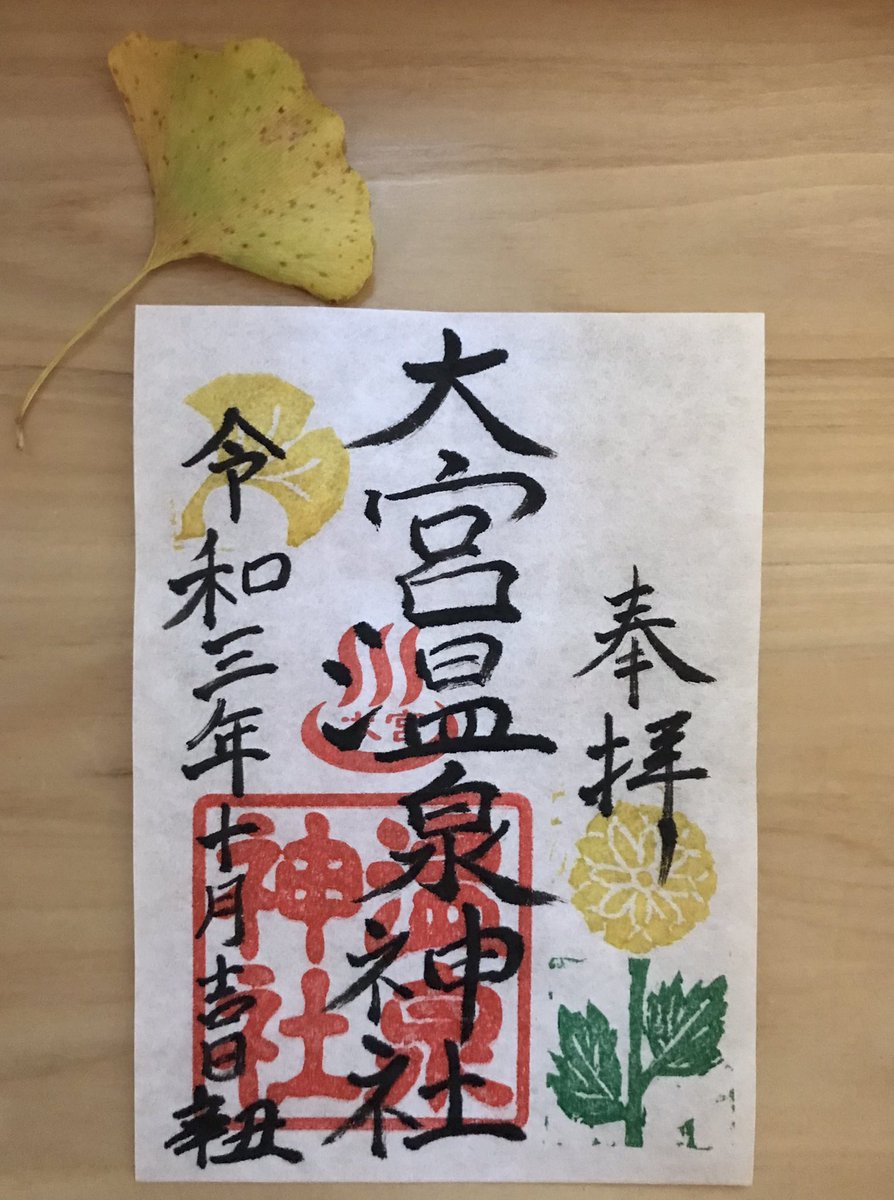 奉拝
大宮温泉神社
大宮
温泉
神社
令和三年十月吉日
辛丑